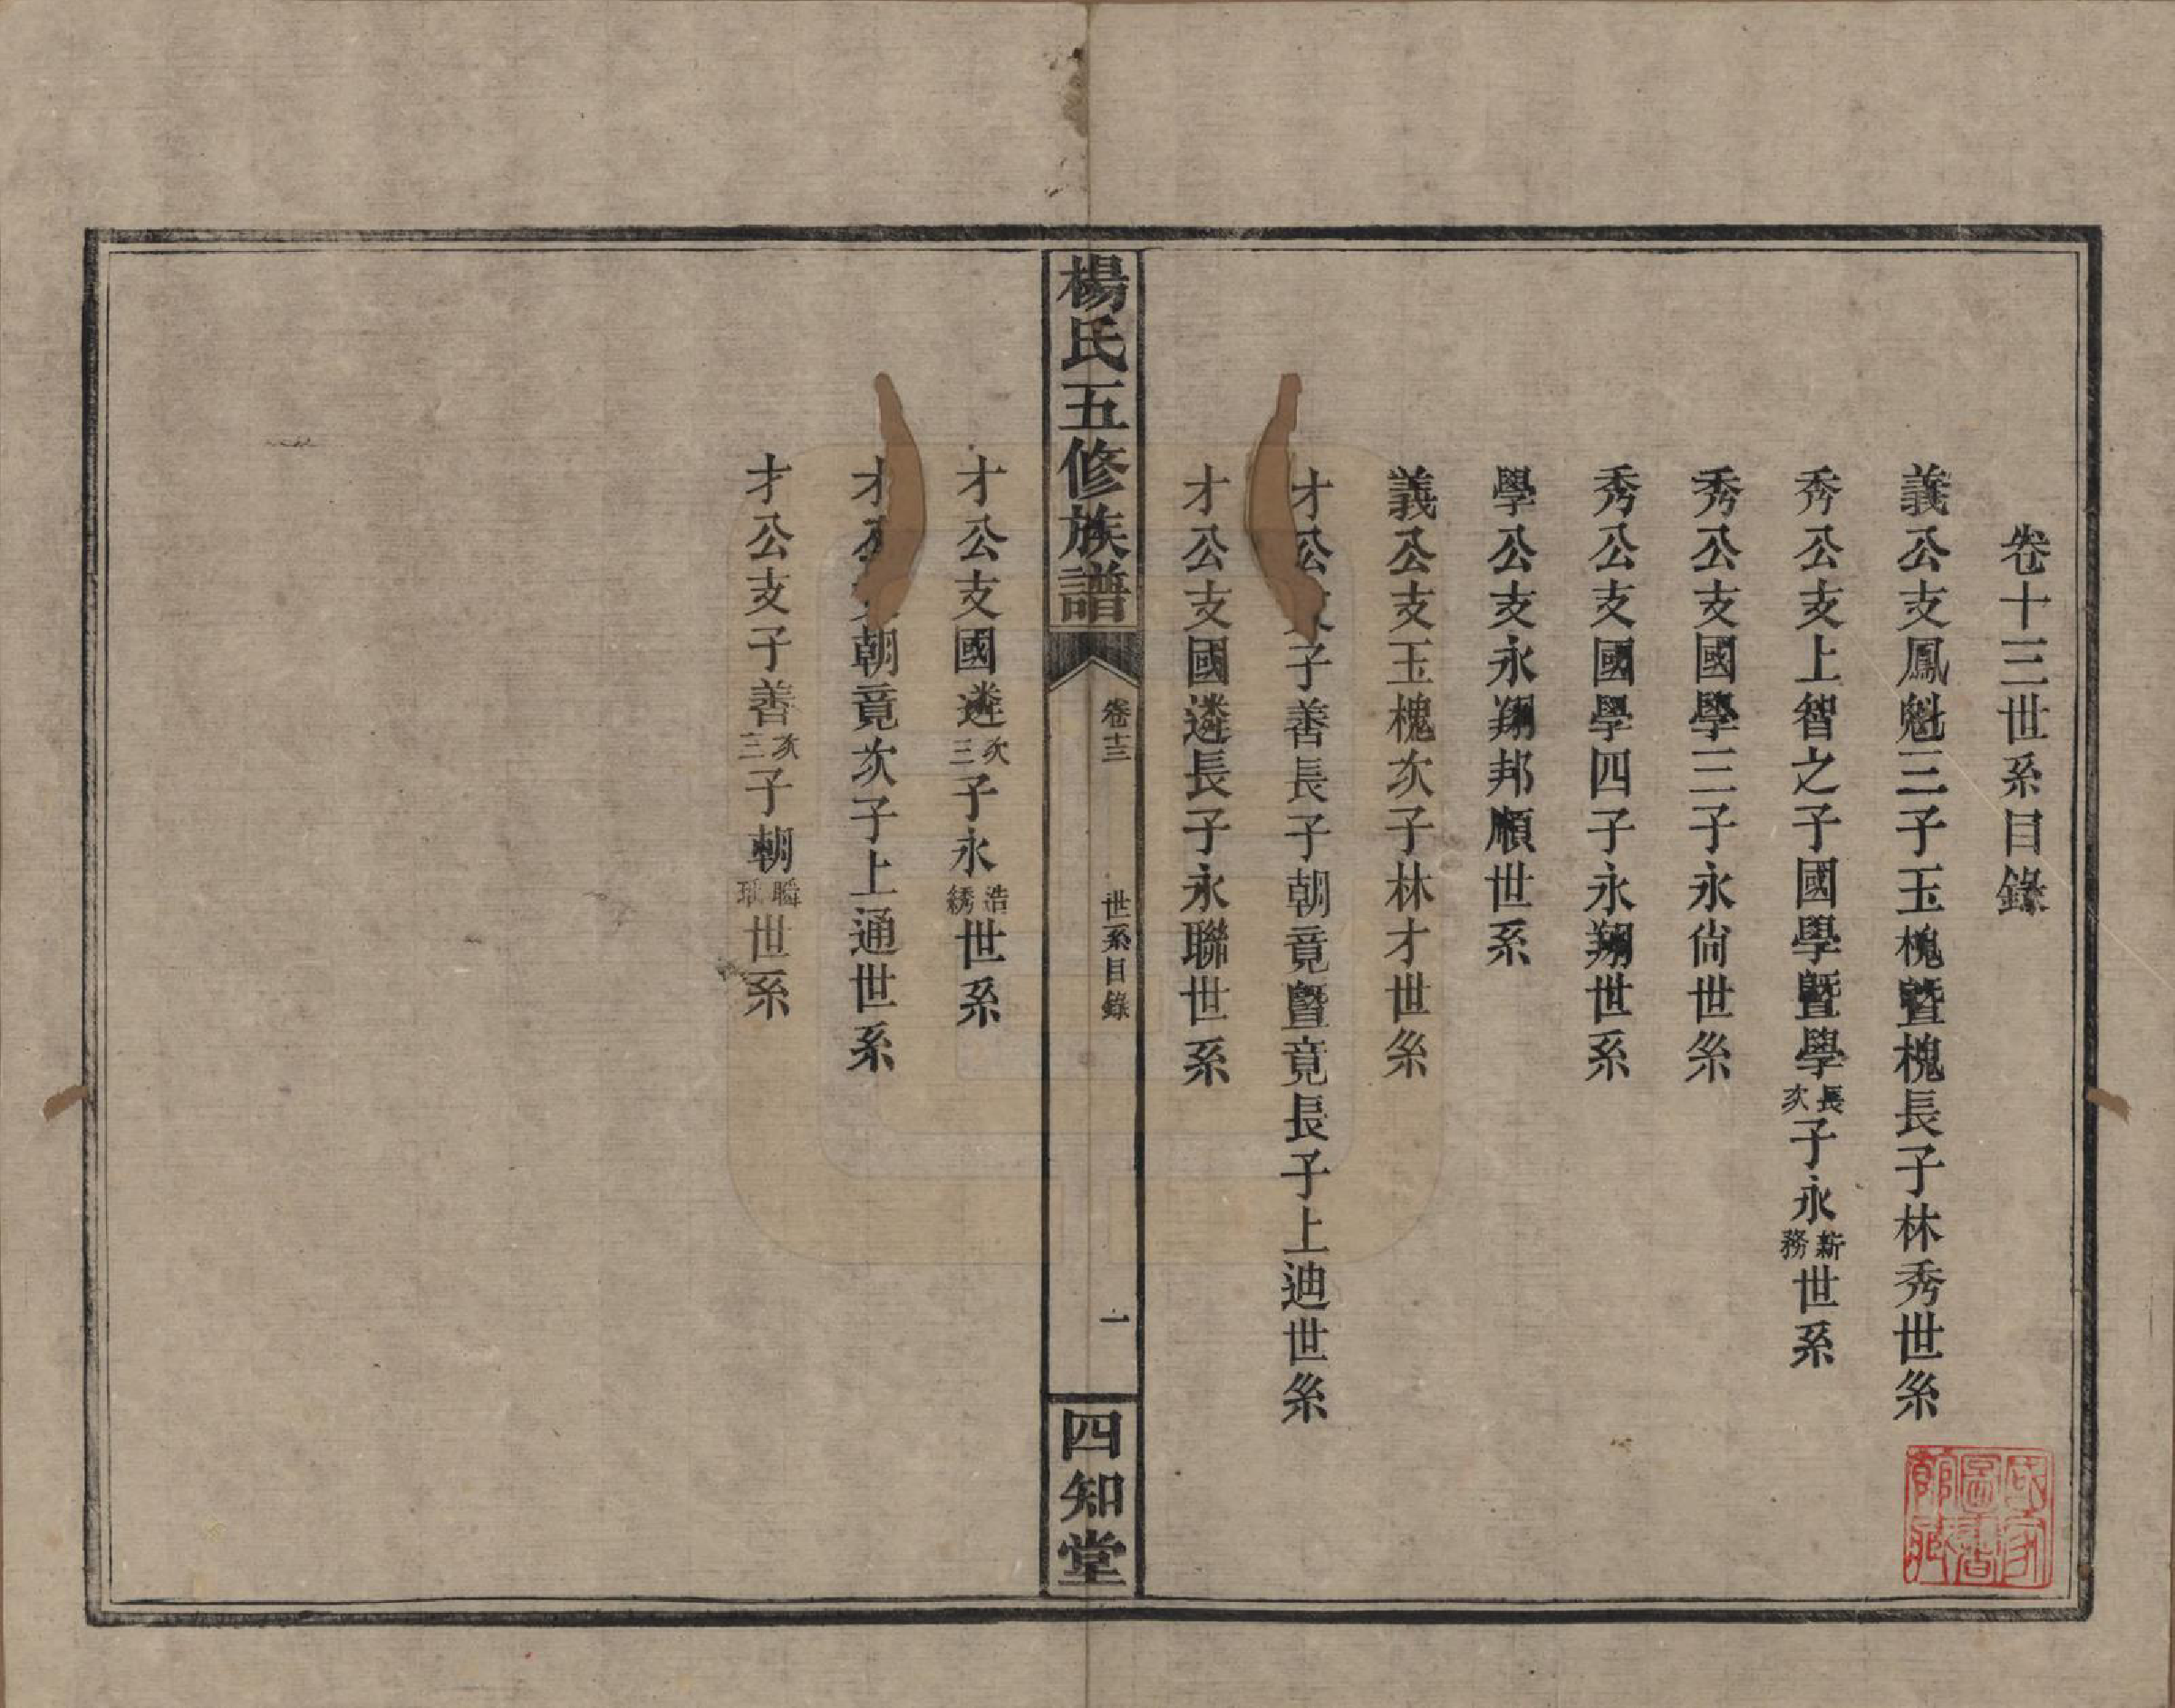 卷十三世系目錄
義公支鳳魁三子玉槐暨槐長子林秀世系
秀公支上智之子國學暨學長次子永新務世系
秀公支國學三子永尙世系
秀公支國學四子永翔世系
學公支永翔邦順世系
義公支玉槐次子林才世系
才公支子善長子朝竟暨竟長子上迪世系
才公支國遴長子永聯世系
楊氏五修族譜
卷十三
世系目錄
一
四知堂
才公支國遴次三子永浩綉世系
才公支朝竟次子上通世系
才公支子善次三子朝世系
國家圖書館藏